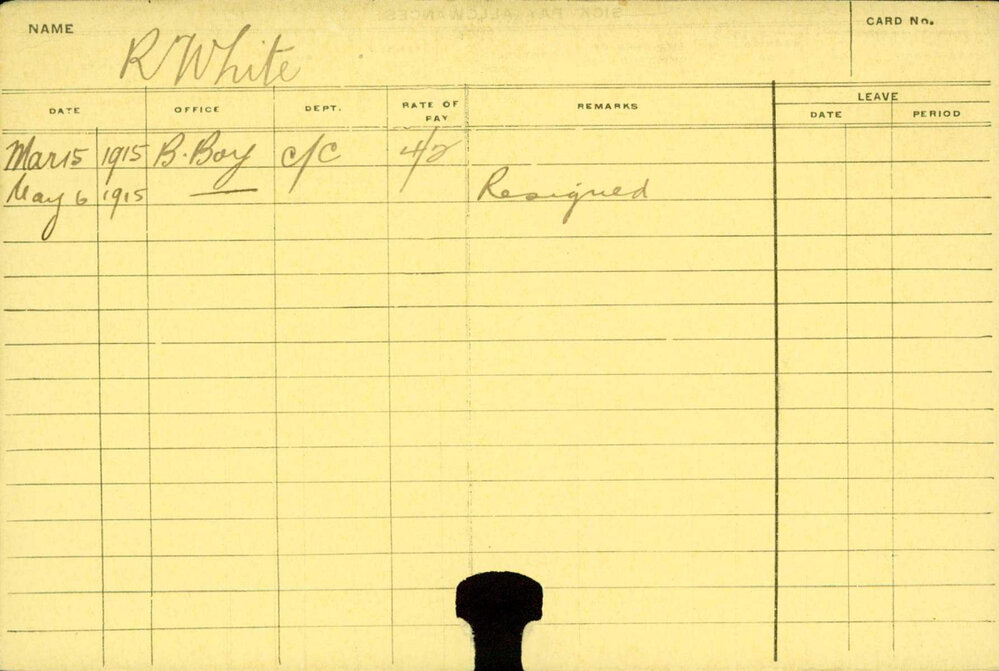 NAME
R White
CARD No.
DATE OFFICE DEPT. RATE OF PAY REMARKS LEAVE
DATE PERIOD
Mar 15 1915 B. Boy c/c 4/2
May 6 1915 — Resigned